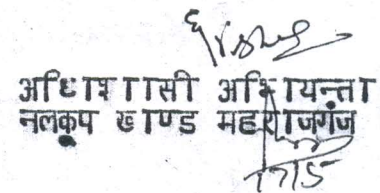 अधिशासी अभियन्ता
नलकूप खण्ड महराजगंज